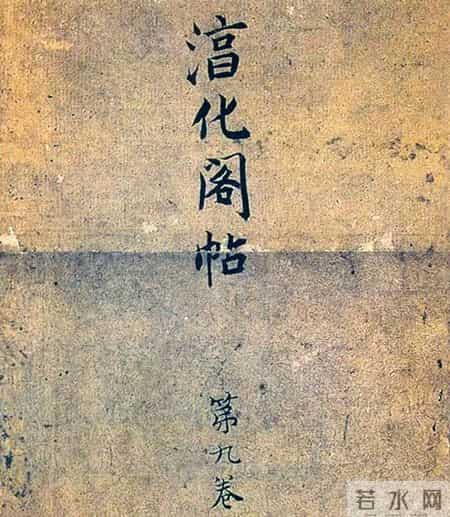 湻化閣帖
第九卷
若水网